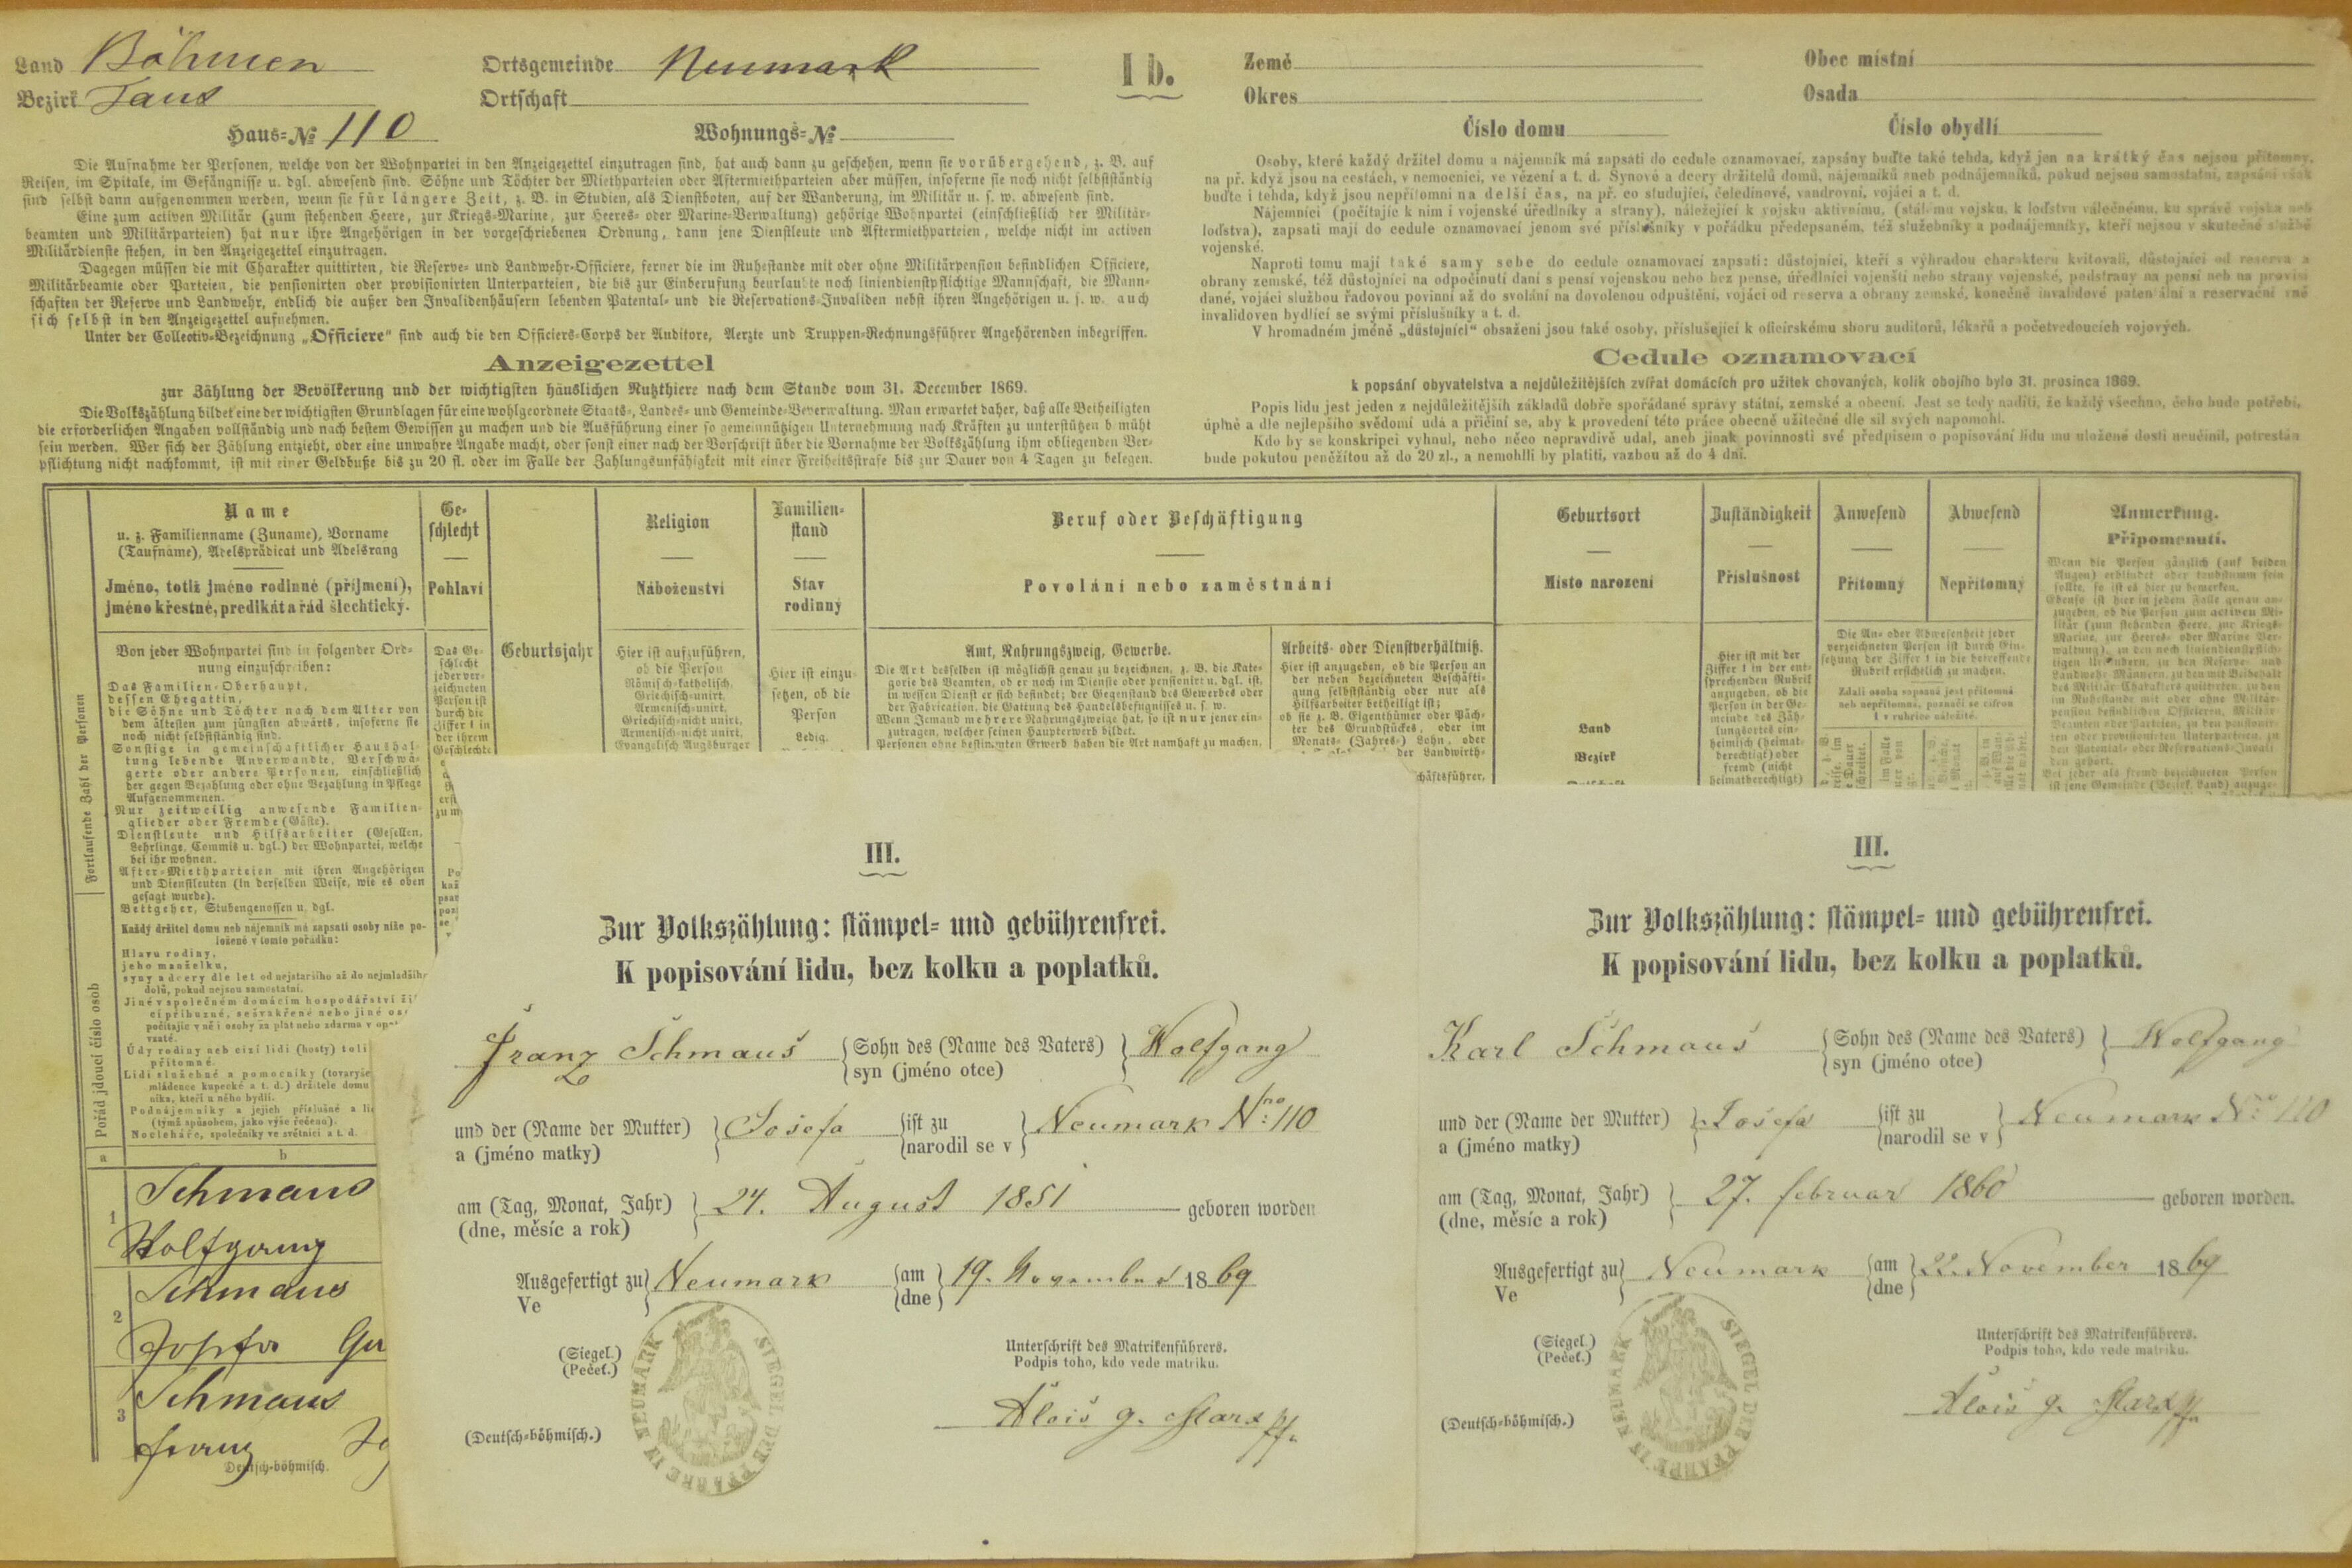 Land Böhmen
Bezirk Taus
Ortsgemeinde Neumark
Ortschaft
Haus-№ 110
Wohnungs-№
I b.
Země
Okres
Obec místní
Osada
Číslo domu
Číslo obydlí
Die Aufnahme der Personen, welche von der Wohnpartei in den Anzeigezettel einzutragen sind, hat auch dann zu geschehen, wenn sie vorübergehend, z. B. auf
Reisen, im Spitale, im Gefängnisse u. dgl. abwesend sind. Söhne und Töchter der Miethparteien oder Aftermiethparteien aber müssen, insoferne sie noch nicht selbstständig
sind selbst dann aufgenommen werden, wenn sie für längere Zeit, z. B. in Studien, als Dienstboten, auf der Wanderung, im Militär u. s. w. abwesend sind.
Eine zum activen Militär (zum stehenden Heere, zur Kriegs-Marine, zur Heeres- oder Marine-Verwaltung) gehörige Wohnpartei (einschließlich der Militär-
beamten und Militärparteien) hat nur ihre Angehörigen in der vorgeschriebenen Ordnung, dann jene Dienstleute und Aftermiethparteien, welche nicht im activen
Militärdienste stehen, in den Anzeigezettel einzutragen.
Dagegen müssen die mit Charakter quittirten, die Reserve- und Landwehr-Officiere, ferner die im Ruhestande mit oder ohne Militärpension befindlichen Officiere,
Militärbeamte oder Parteien, die pensionirten oder provisionirten Unterparteien, die bis zur Einberufung beurlaubte noch liniendienstpflichtige Mannschaft, die Mann-
schaften der Reserve und Landwehr, endlich die außer den Invalidenhäusern lebenden Patental- und die Reservations-Invaliden nebst ihren Angehörigen u. s. w. auch
sich selbst in den Anzeigezettel aufnehmen.
Unter der Collectiv-Bezeichnung „Officiere“ sind auch die den Officiers-Corps der Auditore, Aerzte und Truppen-Rechnungsführer Angehörenden inbegriffen.
Anzeigezettel
zur Zählung der Bevölkerung und der wichtigsten häuslichen Nutzthiere nach dem Stande vom 31. December 1869.
Die Volkszählung bildet eine der wichtigsten Grundlagen für eine wohlgeordnete Staats-, Landes- und Gemeinde-Verwaltung. Man erwartet daher, daß alle Betheiligten
die erforderlichen Angaben vollständig und nach bestem Gewissen zu machen und die Ausführung einer so gemeinnützigen Unternehmung nach Kräften zu unterstützen bemüht
sein werden. Wer sich der Zählung entzieht, oder eine unwahre Angabe macht, oder sonst einer nach der Vorschrift über die Vornahme der Volkszählung ihm obliegenden Ver-
pflichtung nicht nachkommt, ist mit einer Geldbuße bis zu 20 fl. oder im Falle der Zahlungsunfähigkeit mit einer Freiheitsstrafe bis zur Dauer von 4 Tagen zu belegen.
Osoby, které každý držitel domu a nájemník má zapsati do cedule oznamovací, zapsány buďte také tehda, když jen na krátký čas nejsou přítomny,
na př. když jsou na cestách, v nemocnici, ve vězení a t. d. Synové a dcery držitelů domů, nájemníků aneb podnájemníků, pokud nejsou samostatni, zapsáni však
buďte i tehda, když jsou nepřítomni na delší čas, na př. co studující, čeledínové, vandrovní, vojáci a t. d.
Nájemníci (počítajíc k nim i vojenské úředlníky a strany), náležející k vojsku aktivnímu, (stálému vojsku, k loďstvu válečnému, ku správě vojska neb
loďstva), zapsati mají do cedule oznamovací jenom své příslušníky v pořádku předepsaném, též služebníky a podnájemníky, kteří nejsou v skutečné službě
vojenské.
Naproti tomu mají také samy sebe do cedule oznamovací zapsati: důstojníci, kteří s výhradou charakteru kvitovali, důstojníci od reserva a
obrany zemské, též důstojníci na odpočinutí daní s pensí vojenskou nebo bez pense, úředlníci vojenští nebo strany vojenské, podstrany na pensi neb na provisi
dané, vojáci službou řadovou povinní až do svolání na dovolenou odpuštění, vojáci od reserva a obrany zemské, konečně invalidové patentální a reservační vně
invalidoven bydlící se svými příslušníky a t. d.
V hromadném jméně „důstojníci“ obsaženi jsou také osoby, příslušející k oficírskému sboru auditorů, lékařů a početvedoucích vojových.
Cedule oznamovací
k popsání obyvatelstva a nejdůležitějších zvířat domácích pro užitek chovaných, kolik obojího bylo 31. prosince 1869.
Popis lidu jest jeden z nejdůležitějších základů dobře spořádané správy státní, zemské a obecní. Jest se tedy nadíti, že každý všechno, čeho bude potřebí,
úplně a dle nejlepšího svědomí udá a přičiní se, aby k provedení této práce obecně užitečné dle sil svých napomohl.
Kdo by se konskripci vyhnul, nebo něco nepravdivě udal, aneb jinak povinnosti své předpisem o popisování lidu mu uložené dosti neučinil, potrestán
bude pokutou peněžitou až do 20 zl., a nemohl-li by platiti, vazbou až do 4 dní.
Fortlaufende Zahl der Personen
Pořád jdoucí číslo osob
Name
u. z. Familienname (Zuname), Vorname
(Taufname), Adelsprädicat und Adelsrang
Jméno, totiž jméno rodinné (příjmení),
jméno křestné, predikát a řád šlechtický.
Ge-
schlecht
Pohlaví
Geburtsjahr
Religion
Náboženství
Familien-
stand
Stav
rodinný
Beruf oder Beschäftigung
Povolání nebo zaměstnání
Geburtsort
Místo narození
Zuständigkeit
Příslušnost
Anwesend
Přítomný
Abwesend
Nepřítomný
Anmerkung.
Připomenutí.
Wenn die Person gänzlich (auf beiden
Augen) erblindet oder taubstumm sein
sollte, so ist es hier zu bemerken.
Von jeder Wohnpartei sind in folgender Ord-
nung einzuschreiben:
Das Familien-Oberhaupt,
dessen Ehegattin,
die Söhne und Töchter nach dem Alter von
dem ältesten zum jüngsten abwärts, insoferne sie
noch nicht selbstständig sind.
Sonstige in gemeinschaftlicher Haushal-
tung lebende Anverwandte, Verschwä-
gerte oder andere Personen, einschließlich
der gegen Bezahlung oder ohne Bezahlung in Pflege
Aufgenommenen.
Nur zeitweilig anwesende Familien-
glieder oder Fremde (Gäste).
Dienstleute und Hilfsarbeiter (Gesellen,
Lehrlinge, Commis u. dgl.) der Wohnpartei, welche
bei ihr wohnen.
After-Miethparteien mit ihren Angehörigen
und Dienstleuten (in derselben Weise, wie es oben
gesagt wurde).
Bettgeher, Stubengenossen u. dgl.
Každý držitel domu neb nájemník má zapsati osoby níže po-
ložené v tomto pořádku:
Hlavu rodiny,
jeho manželku,
syny a dcery dle let od nejstaršího až do nejmladšího
dolů, pokud nejsou samostatni.
Das Ge-
schlecht
jeder ver-
zeichneten
Person ist
durch die
Ziffer 1 in
der ihrem
Geschlechte
Hier ist aufzuführen,
ob die Person
Römisch-katholisch,
Griechisch-unirt,
Armenisch-unirt,
Griechisch-nicht unirt,
Armenisch-nicht unirt,
Evangelisch Augsburger
Hier ist einzu-
setzen, ob die
Person
Ledig,
Amt, Nahrungszweig, Gewerbe.
Die Art desselben ist möglichst genau zu bezeichnen, z. B. die Kate-
gorie des Beamten, ob er noch im Dienste oder pensionirt u. dgl. ist,
in wessen Dienst er sich befindet; der Gegenstand des Gewerbes oder
der Fabrication, die Gattung des Handelsbefugnisses u. s. w.
Wenn Jemand mehrere Nahrungszweige hat, so ist nur jener ein-
zutragen, welcher seinen Haupterwerb bildet.
Personen ohne bestimmten Erwerb haben die Art namhaft zu machen,
Arbeits- oder Dienstverhältniß.
Hier ist anzugeben, ob die Person an
der neben bezeichneten Beschäfti-
gung selbstständig oder nur als
Hilfsarbeiter betheiligt ist;
ob sie z. B. Eigenthümer oder Päch-
ter des Grundstückes, oder im
Monats- (Jahres-) Lohn, oder
der Landwirth-
schäftsführer,
Land
Bezirk
Hier ist mit der
Ziffer 1 in der ent-
sprechenden Rubrik
anzugeben, ob die
Person in der Ge-
meinde des Zäh-
lungsortes ein-
heimisch (heimat-
berechtigt) oder
fremd (nicht
heimatberechtigt)
Die An- oder Abwesenheit jeder
verzeichneten Person ist durch Ein-
setzung der Ziffer 1 in die betreffende
Rubrik ersichtlich zu machen.
Zdali osoba zapsaná jest přítomná
neb nepřítomná, poznačí se cifrou
1 v rubrice náležité.
a
b
1 Schmaus
Wolfgang
2 Schmaus
Josefa
3 Schmaus
Franz
Deutsch-böhmisch.
III.
Zur Volkszählung: stämpel- und gebührenfrei.
K popisování lidu, bez kolku a poplatků.
Franz Schmaus Sohn des (Name des Vaters) Wolfgang
syn (jméno otce)
und der (Name der Mutter) Josefa ist zu Neumark Nro 110
a (jméno matky) narodil se v
am (Tag, Monat, Jahr) 24. August 1851 geboren worden
(dne, měsíc a rok)
Ausgefertigt zu Neumark am 19. November 1869
Ve dne
(Siegel.)
(Pečeť.)
SIEGEL DER PFARRE IN NEUMARK
Unterschrift des Matrikenführers.
Podpis toho, kdo vede matriku.
Alois g. Marx Pfr.
(Deutsch-böhmisch.)
III.
Zur Volkszählung: stämpel- und gebührenfrei.
K popisování lidu, bez kolku a poplatků.
Karl Schmaus Sohn des (Name des Vaters) Wolfgang
syn (jméno otce)
und der (Name der Mutter) Josefa ist zu Neumark Nro 110
a (jméno matky) narodil se v
am (Tag, Monat, Jahr) 27. Februar 1860 geboren worden.
(dne, měsíc a rok)
Ausgefertigt zu Neumark am 22. November 1869
Ve dne
(Siegel.)
(Pečeť.)
SIEGEL DER PFARRE IN NEUMARK
Unterschrift des Matrikenführers.
Podpis toho, kdo vede matriku.
Alois g. Marx Pfr.
(Deutsch-böhmisch.)